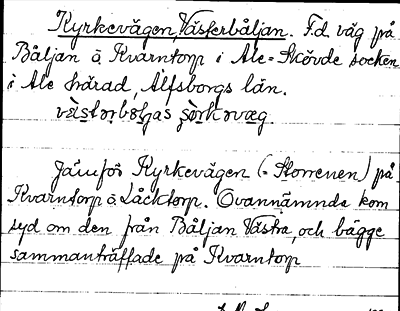 Kyrkevägen, Västerbåljan. F.d. väg på
Båljan å Kvarntorp i Ale-Skövde socken
i Ale härad, Älfsborgs län.
Jämför Kyrkevägen (= Storrenen) på
Kvarntorp å Låcktorp. Ovannämnda kom
syd om den från Båljan Västra, och bägge
sammanträffade på Kvarntorp